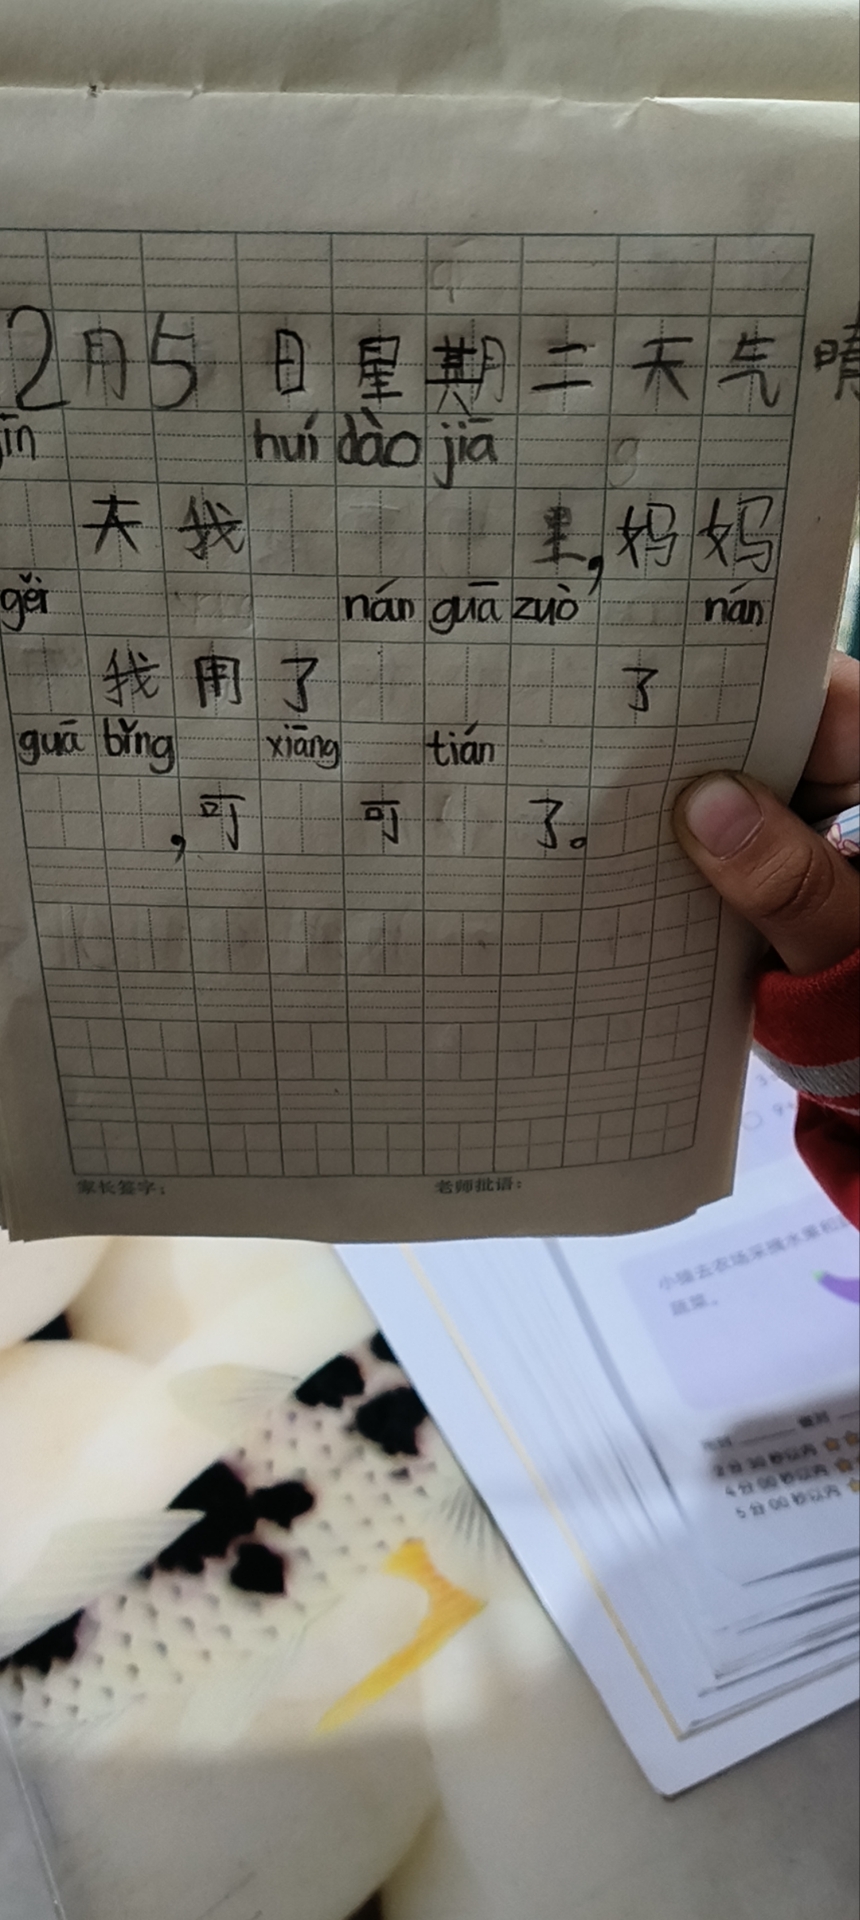 2月5日星期二天气晴
jīn huí dào jiā
天我里,妈妈
gěi nán guā zuò nán
我用了了
guā bǐng xiāng tián
,可可了。
家长签字: 老师批语:
小猴去农场采摘水果和
蔬菜。
2分30秒以内
4分00秒以内
5分00秒以内